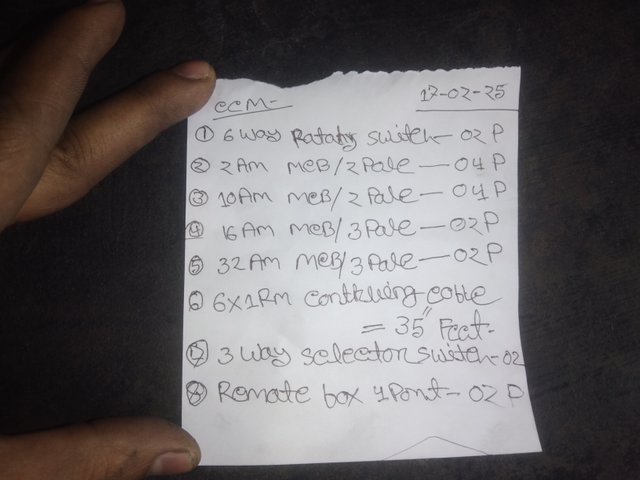 CCM-
17-02-25
① 6 way Rataty switch - 02 P
② 2Am McB/2Pale - 04 P
③ 10Am McB/2Pale - 04 P
④ 16Am McB/3Pale - 02P
⑤ 32Am McB/3Pale - 02P
⑥ 6x1Rm cable
= 35" Feat-
⑦ 3 way selector switch - 02
⑧ Remate box 4Pont - 02 P